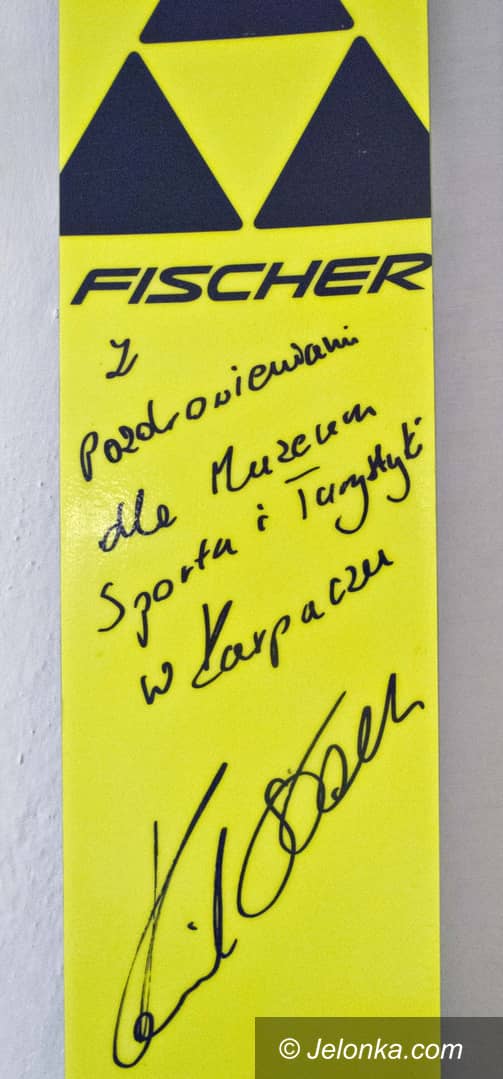 FISCHER
Z
Pozdrowieniami
dla Muzeum
Sportu i Turystyki
w Karpaczu
Kamil Stoch
© Jelonka.com